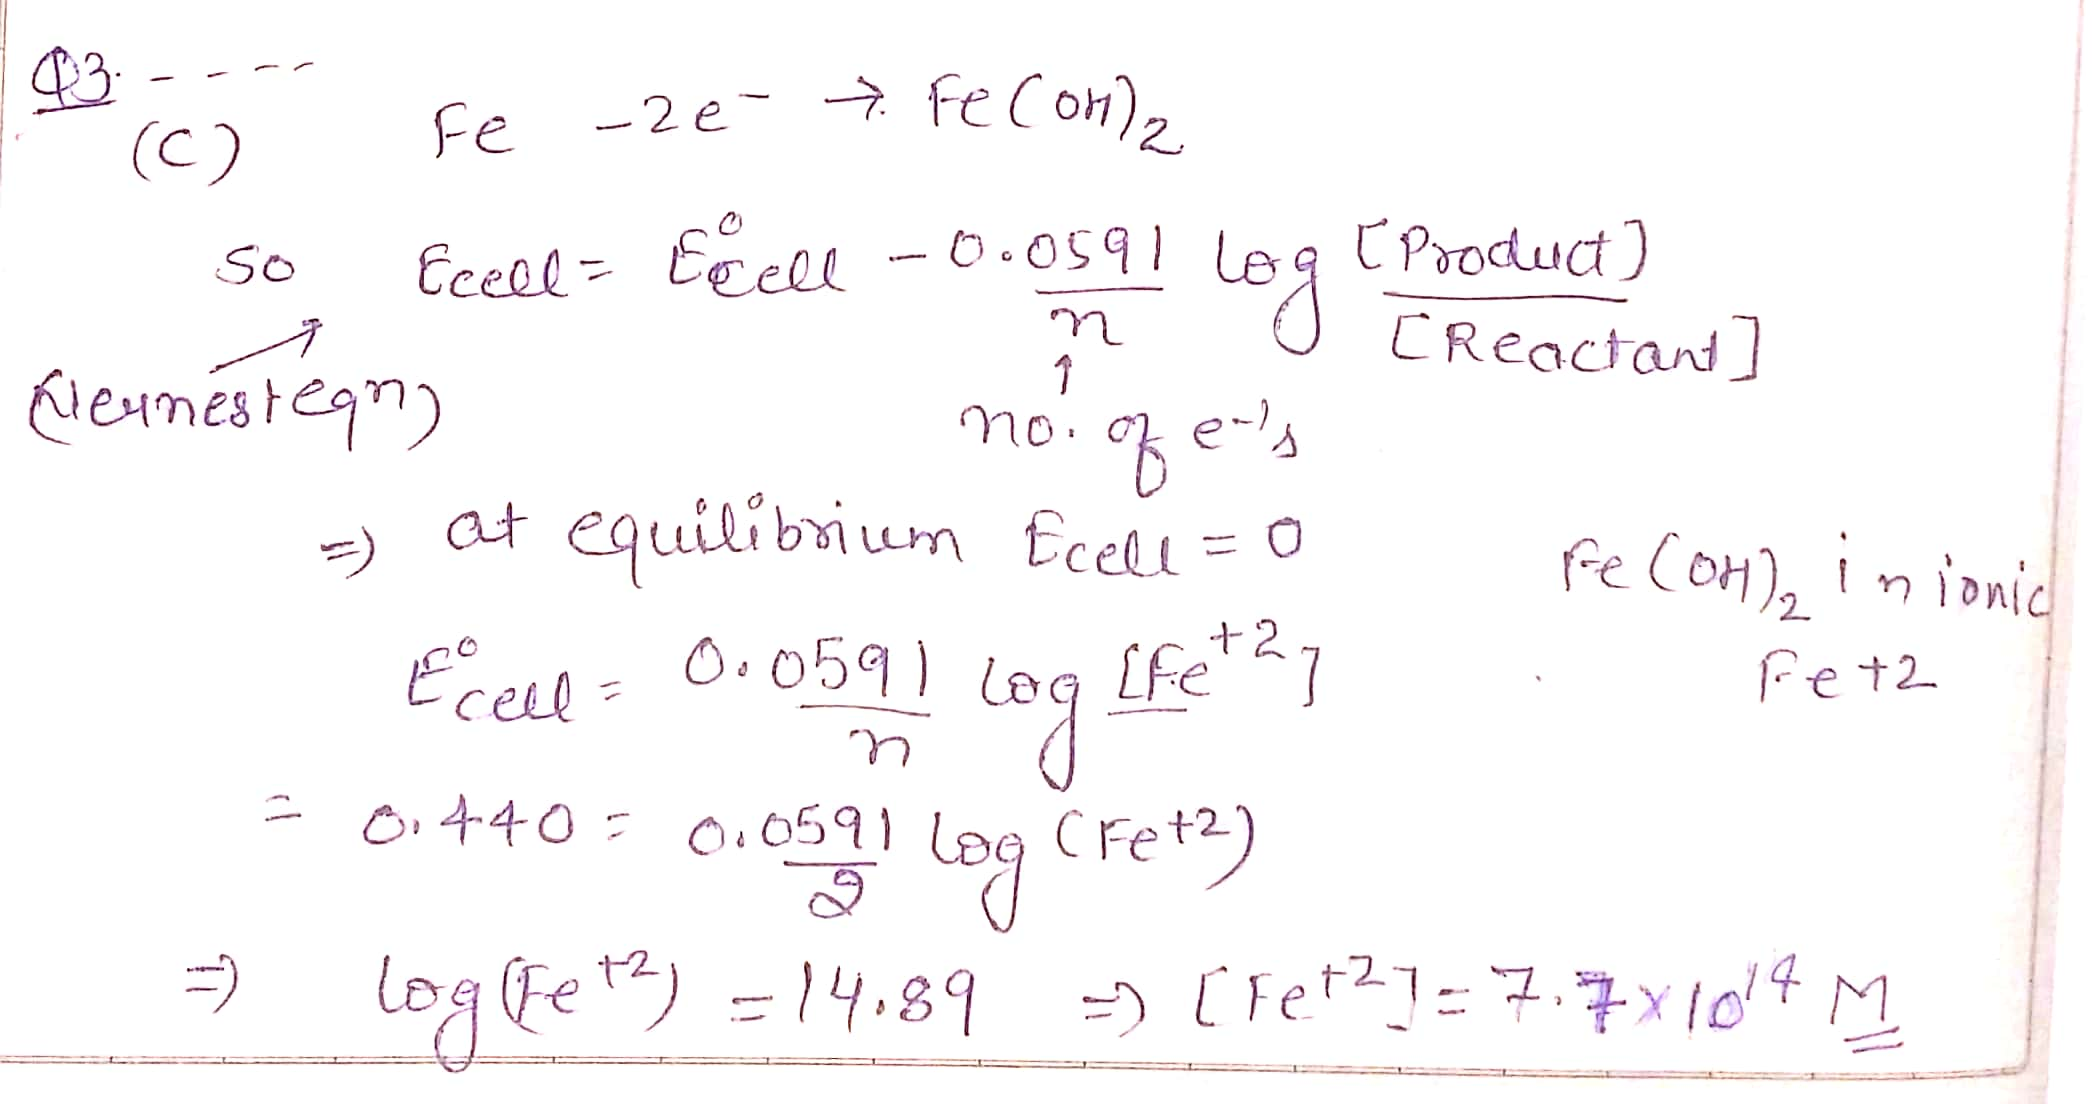 Q3. - - - -
(C) Fe -2e⁻ → Fe(OH)₂
so Ecell = E°cell - 0.0591/n log [Product]/[Reactant]
(Nernest eqn) ↑ no. of e⁻'s
⇒ at equilibrium Ecell = 0
Fe(OH)₂ in ionic
Fe+2
E°cell = 0.0591/n log [Fe⁺²]
= 0.440 = 0.0591/2 log (Fe+2)
⇒ log(Fe⁺²) = 14.89 ⇒ [Fe⁺²] = 7.7x10¹⁴ M